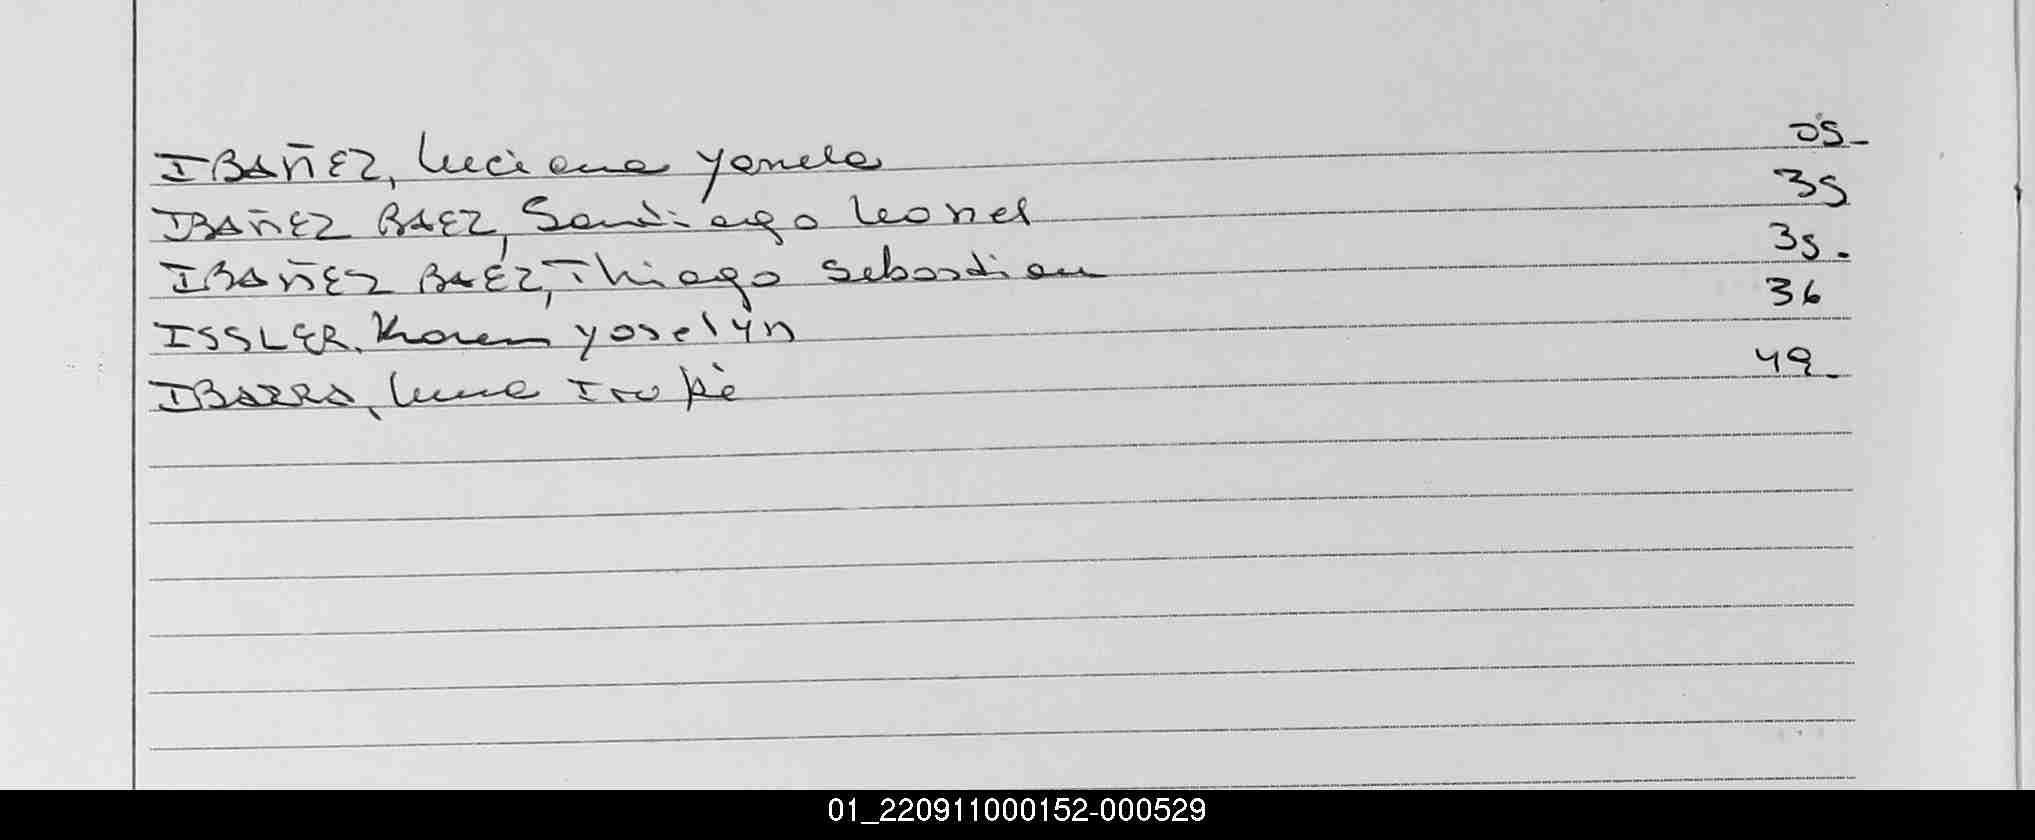 IBAÑEZ, Luciana Yamela 05-
IBAÑEZ BAEZ, Santiago Leonel 35
IBAÑEZ BAEZ, Thiago Sebastian 35.
ISSLER, Karen Yoselyn 36
IBARRA, Luna Irupé 49-
01_220911000152-000529